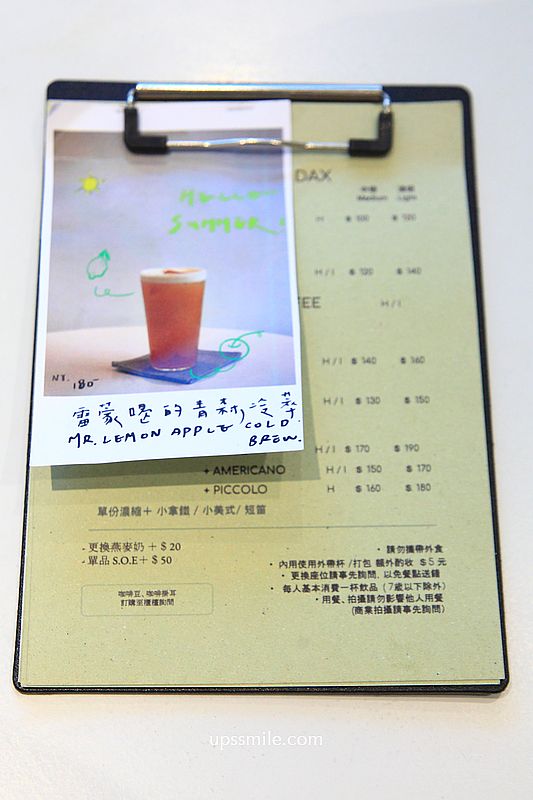 DAX
中焙 淺焙
Medium Light
H $ 100 $ 120
HELLO
SUMMER!
H / I $ 120 $ 140
EE H / I
H / I $ 140 $ 160
NT. 180-
H / I $ 130 $ 150
雷蒙喝的青森冷萃
MR. LEMON APPLE COLD
BREW.
H / I $ 170 $ 190
+ AMERICANO H / I $ 150 $ 170
+ PICCOLO H $ 160 $ 180
單份濃縮＋ 小拿鐵 / 小美式/ 短笛
- 更換燕麥奶 + $ 20
- 單品 S.O.E + $ 50
咖啡豆、咖啡掛耳
訂購至櫃檯詢問
• 請勿攜帶外食
• 內用使用外帶杯 /打包 額外酌收 $ 5 元
• 更換座位請事先詢問, 以免餐點送錯
• 每人基本消費一杯飲品 ( 7歲以下除外)
• 用餐、拍攝請勿影響他人用餐
(商業拍攝請事先詢問)
upssmile.com